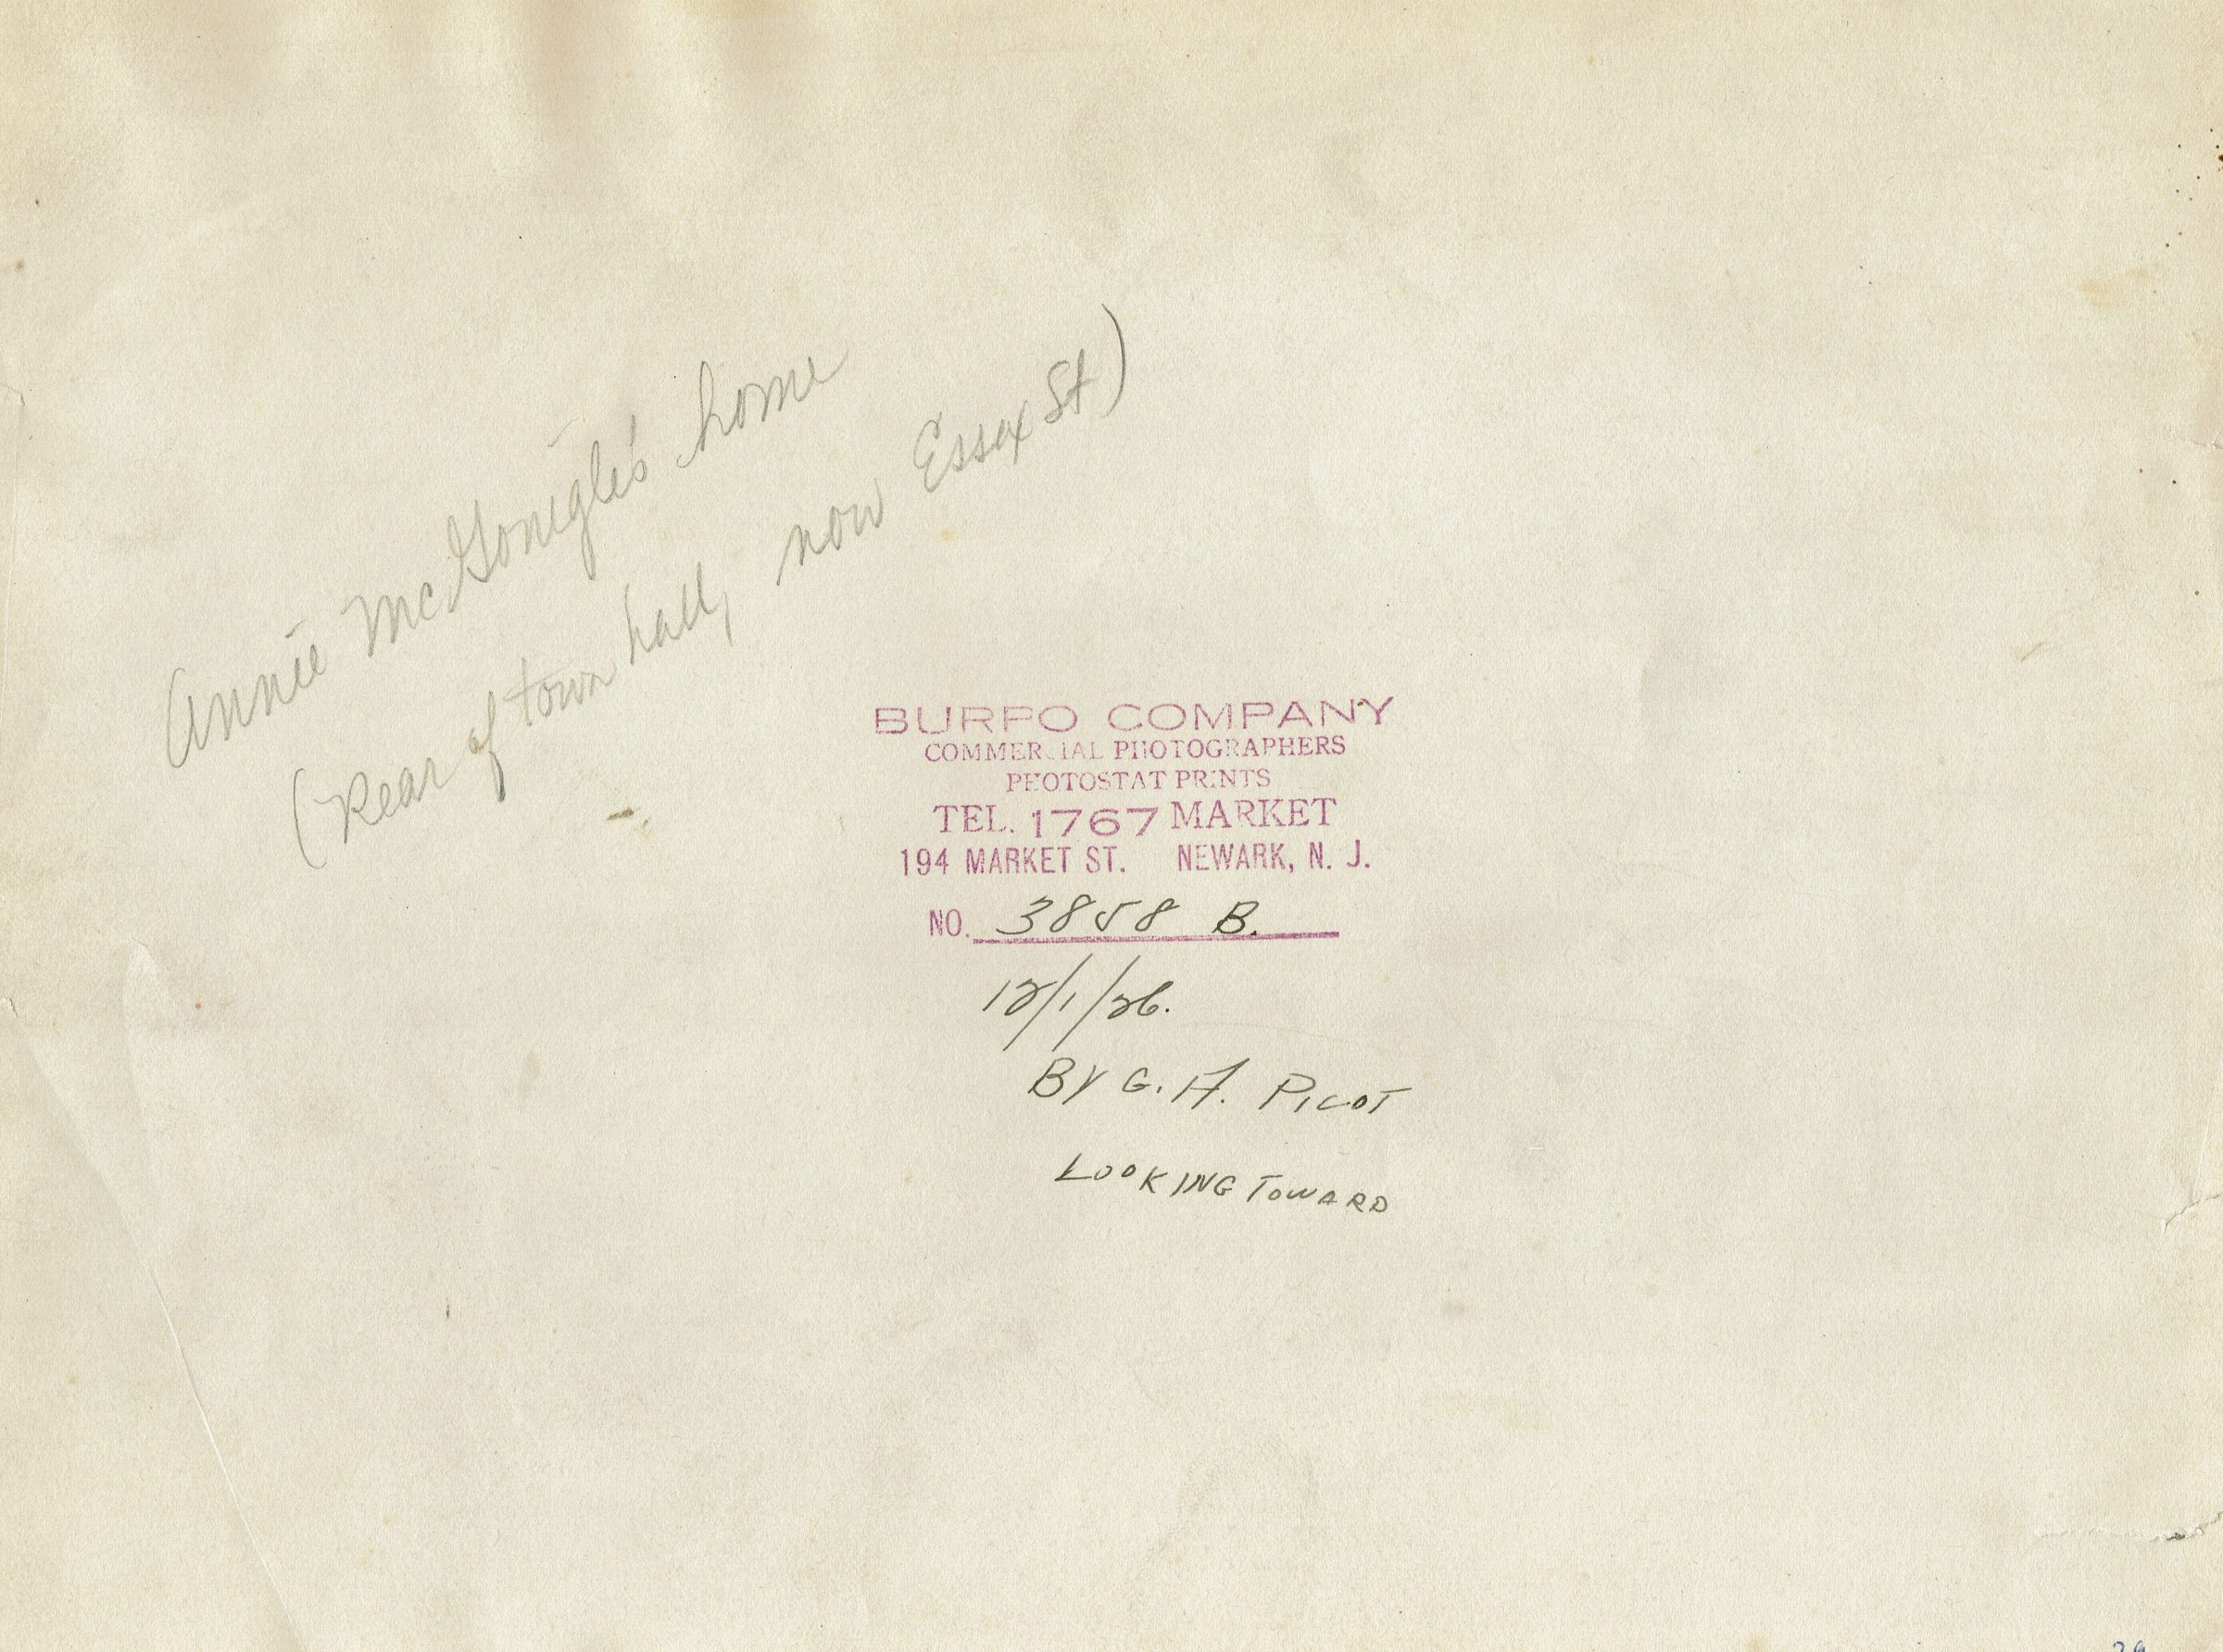 Annie McGonigle's home
(Rear of town hall, now Essex St)
BURPO COMPANY
COMMERCIAL PHOTOGRAPHERS
PHOTOSTAT PRINTS
TEL. 1767 MARKET
194 MARKET ST. NEWARK, N. J.
NO. 3858 B.
12/1/26.
BY G. F. PICOT
LOOKING TOWARD